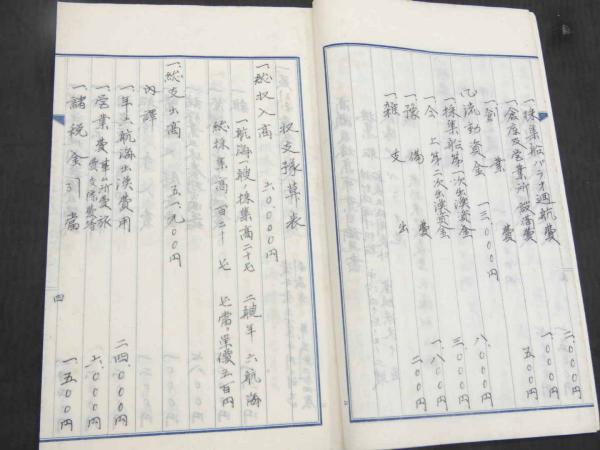 一、採集船パラオ廻航費 二、〇〇〇円
一、倉庫及営業所設備費 一、〇〇〇円
一、営業費 五〇〇円
(乙)流動資金 一三、〇〇〇円
一、採集船第一次出漁資金 八、〇〇〇円
一、仝 上第二次出漁資金 三、〇〇〇円
一、予備費 一、八〇〇円
一、雑支出 二〇〇円
収支予算表
一、総収入高 六〇、〇〇〇円
一航海一艘ノ採集高二十屯 二艘年六航海
総採集高百二十屯 屯当リ単価五百円
一、総支出高 五一、九〇〇円
内訳
一、年六航海出漁費用 二四、〇〇〇円
一、営業費 事ム所費旅費交際費等 六、〇〇〇円
一、諸税金引当 一、五〇〇円
四